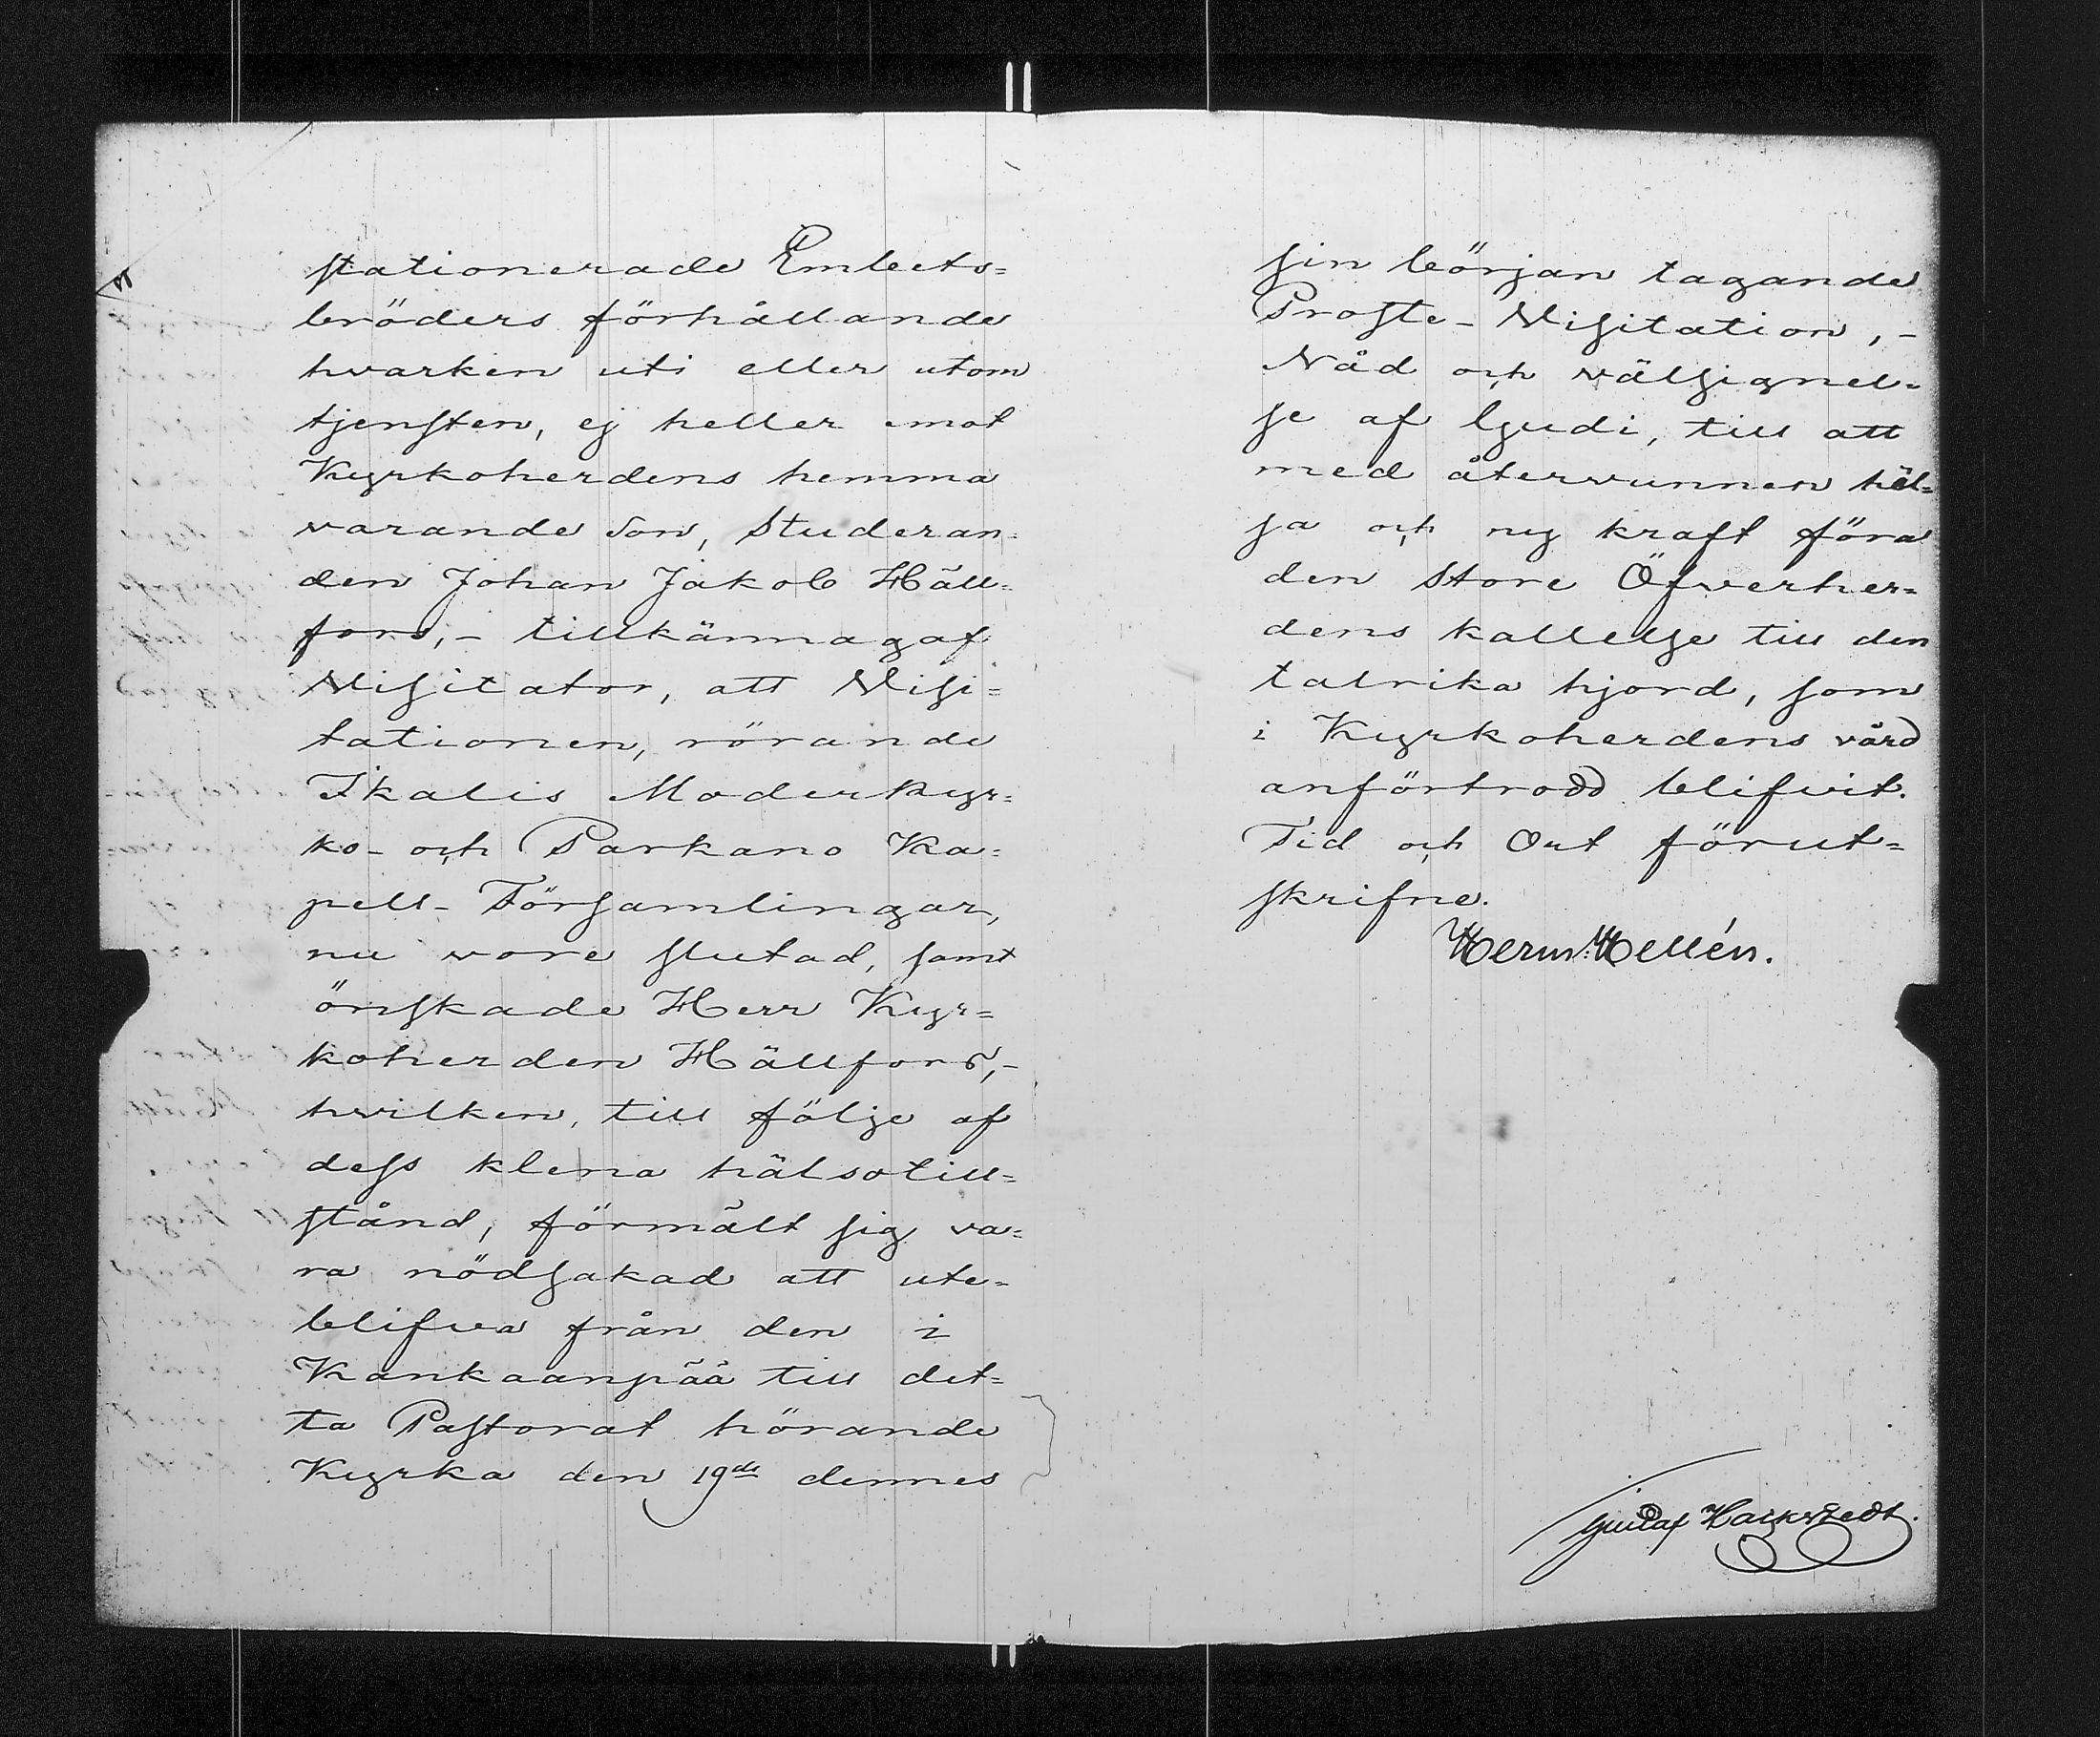 stationerade Embets=
bröders förhållande
hvarken uti eller utom
tjensten, ej heller emot
Kyrkoherdens hemma
varande Son, Studeran=
den Johan Jakob Häll=
fors,- tillkännagaf
Visitator, att Visi=
tationen, rörande
Ikalis Moderkyr=
ko- och Parkano Ka=
pell- Församlingar,
nu vore slutad, samt
önskade Herr Kyr=
koherden Hällfors,-
hvilken, till följe af
dess klena hälsotill=
stånd, förmält sig va=
ra nödsakad att ute=
blifva från den i
Kankaanpää till det=
ta Pastorat hörande
Kyrka den 19de dennes
sin början tagande
Proste- Visitation,-
Nåd och välsignel=
se af Gudi, till att
med återvunnen häl=
sa och ny kraft föra
den Store Öfverher=
dens kallelse till den
talrika hjord, som
i Kyrkoherdens vård
anförtrodd blifvit.
Tid och Ort förut=
skrifne.
Herm: Hellén.
Gustaf